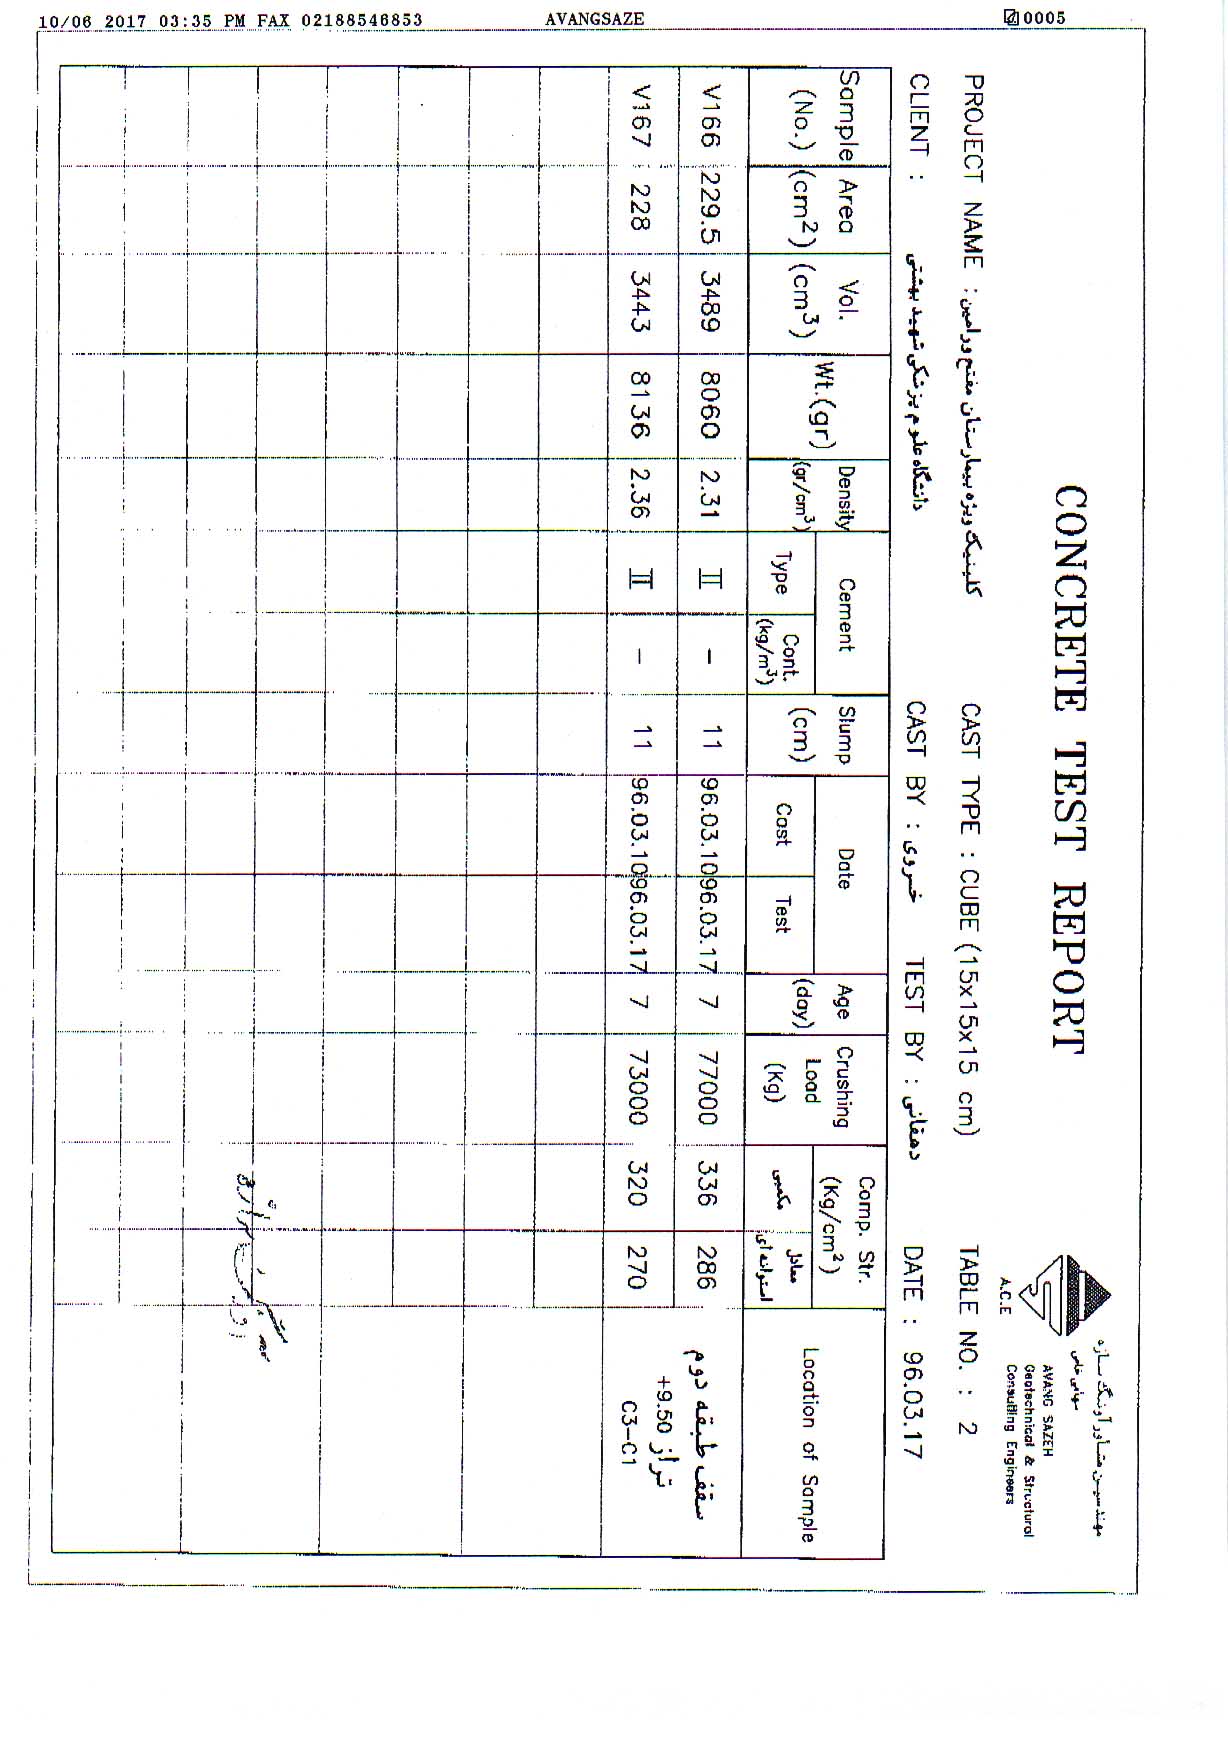 10/06 2017 03:35 PM FAX 02188546853 AVANGSAZE 0005
CONCRETE TEST REPORT
مهندسین مشاور آونگ سازه
سهامی خاص
AVANG SAZEH
Geotechnical & Structural
Consulting Engineers
A.C.E
PROJECT NAME : کلینیک ویژه بیمارستان مفتح ورامین CAST TYPE : CUBE (15x15x15 cm) TABLE NO. : 2
CLIENT : دانشگاه علوم پزشکی شهید بهشتی CAST BY : خسروی TEST BY : دهقانی DATE : 96.03.17
Sample (No.) Area (cm²) Vol. (cm³) Wt.(gr) Density (gr/cm³) Cement Type Cont. (kg/m³) Slump (cm) Date Cast Test Age (day) Crushing Load (Kg) Comp. Str. (Kg/cm²) مکعبی معادل استوانه ای Location of Sample
V166 229.5 3489 8060 2.31 II - 11 96.03.10 96.03.17 7 77000 336 286 سقف طبقه دوم
V167 228 3443 8136 2.36 II - 11 96.03.10 96.03.17 7 73000 320 270 تراز +9.50
C3-C1